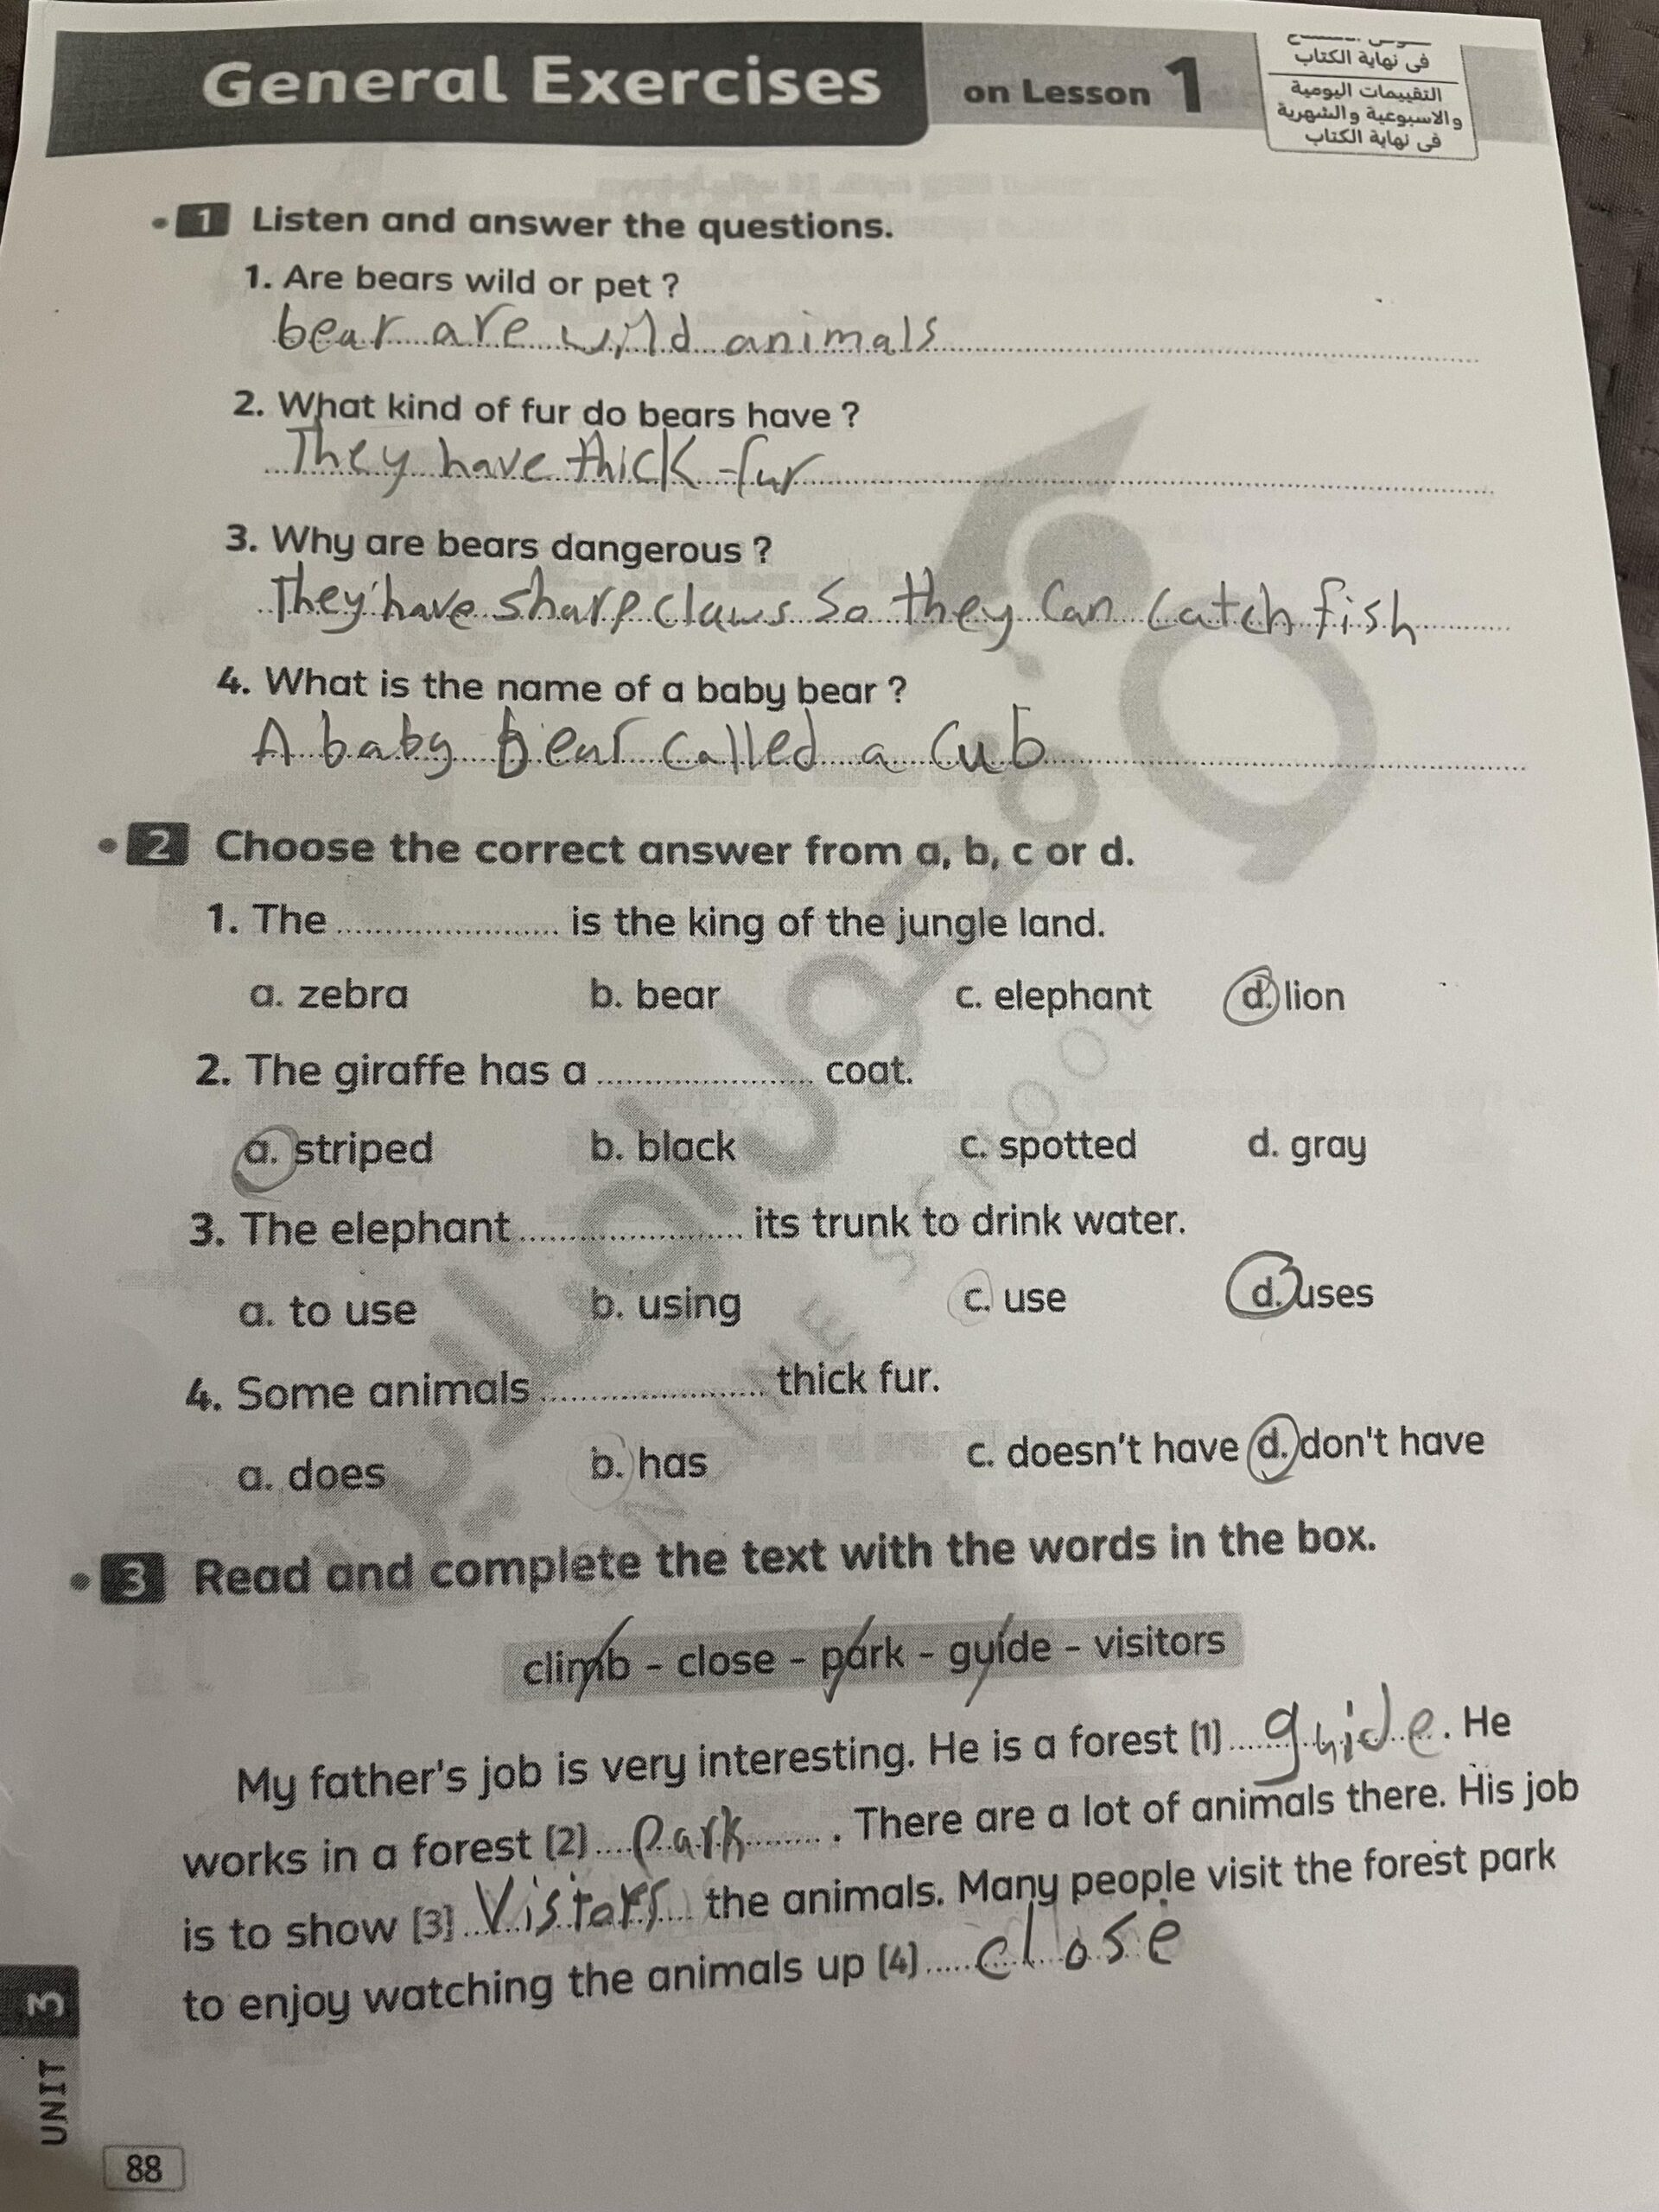 General Exercises on Lesson 1
فى نهاية الكتاب
التقييمات اليومية
والاسبوعية والشهرية
فى نهاية الكتاب
1 Listen and answer the questions.
1. Are bears wild or pet ?
bear are wild animals
2. What kind of fur do bears have ?
They have thick fur
3. Why are bears dangerous ?
They have sharp claws So they Can Catch fish
4. What is the name of a baby bear ?
A baby bear Called a Cub
2 Choose the correct answer from a, b, c or d.
1. The ...................... is the king of the jungle land.
a. zebra b. bear c. elephant d. lion
2. The giraffe has a ...................... coat.
a. striped b. black c. spotted d. gray
3. The elephant ...................... its trunk to drink water.
a. to use b. using c. use d. uses
4. Some animals ...................... thick fur.
a. does b. has c. doesn't have d. don't have
3 Read and complete the text with the words in the box.
climb - close - park - guide - visitors
My father's job is very interesting. He is a forest (1) guide . He
works in a forest (2) park . There are a lot of animals there. His job
is to show (3) Vistors the animals. Many people visit the forest park
to enjoy watching the animals up (4) close
UNIT 3
88
ONLINE SCHOOL